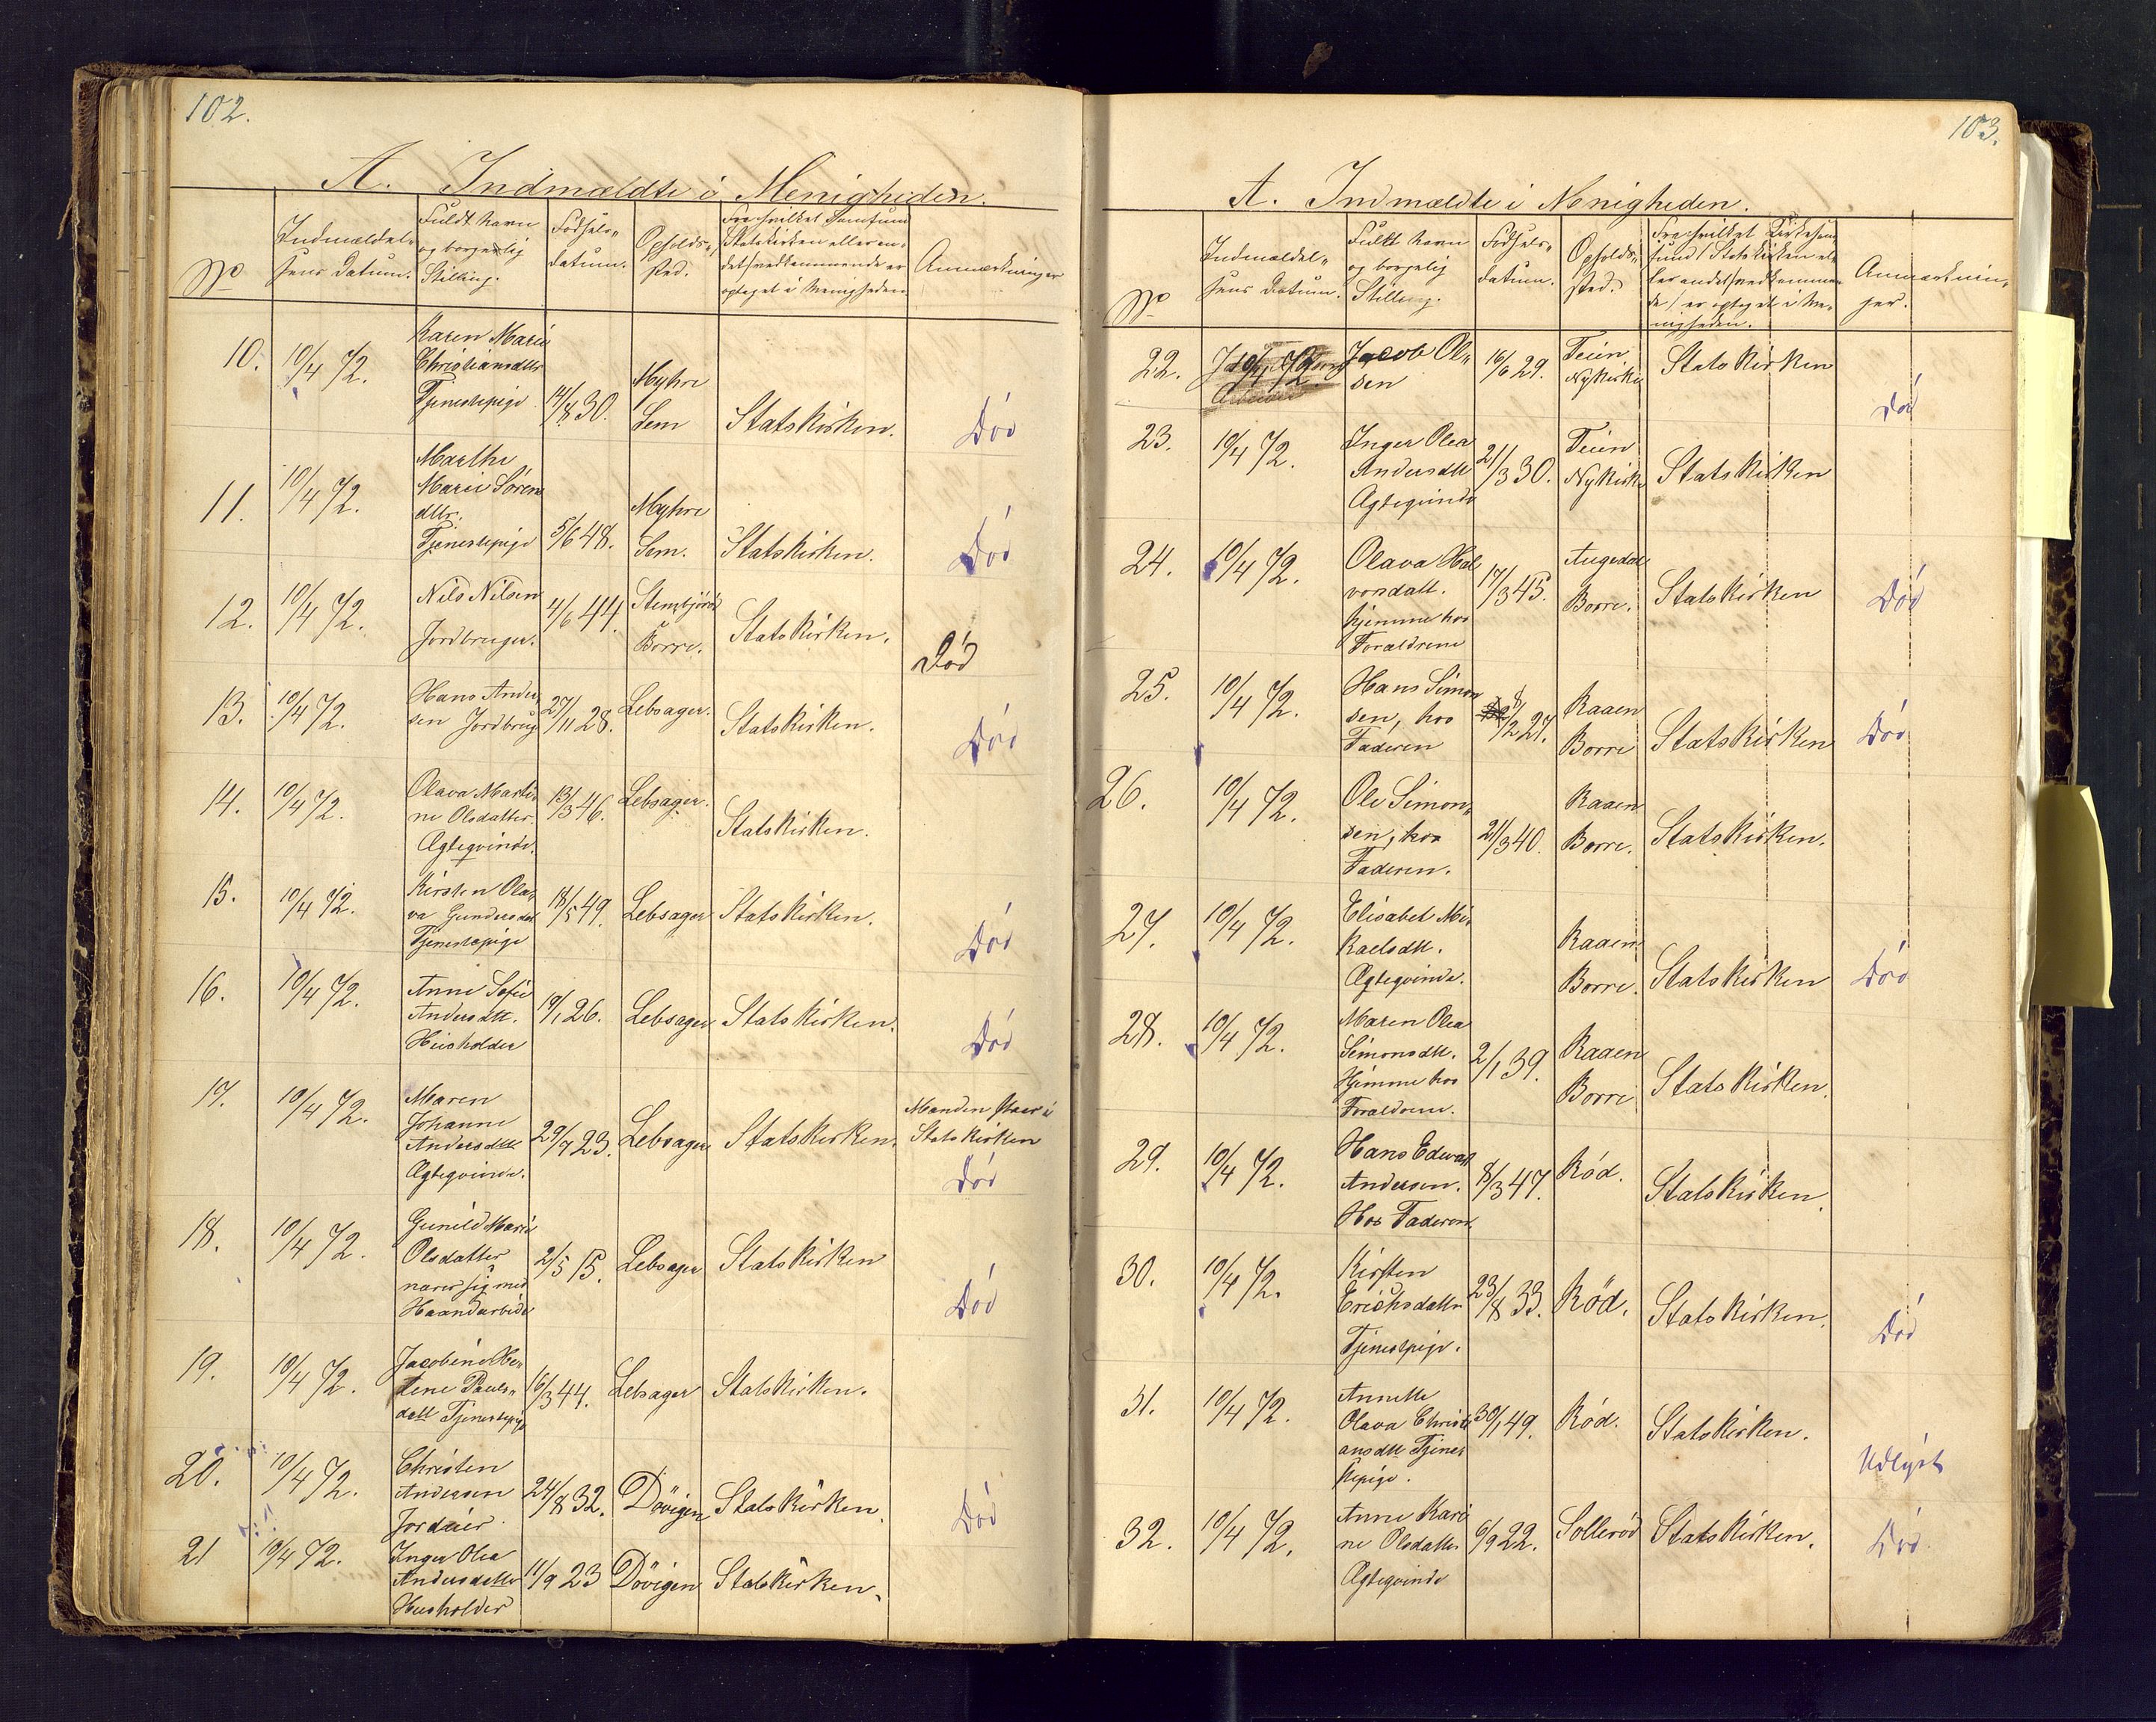 102.
A. Indmældte i Menigheden.
No
Indmældel-
sens Datum.
Fuldt Navn
og borgerlig
Stilling.
Födsels-
datum.
Opholds-
sted.
Fra hvilket Samfund
(Statskirken eller an-
det vedkommende er
optaget i Menigheden
Anmærkninger
10. 10/4 72.
Karen Marie
Christiansdtr
Tjenestepige
14/8 30.
Myhre
Sem
Statskirken.
Död
11. 10/4 72.
Marthe
Marie Sören
dttr.
Tjenestepige
5/6 48.
Myhre
Sem.
Statskirken.
Död
12. 10/4 72.
Nils Nilsen
Jordbruger.
4/6 44.
Borre.
Statskirken.
Död
13. 10/4 72.
Hans Ander
sen Jordbrug
27/11 28.
Lebsager.
Statskirken.
Död
14. 10/4 72.
Olava Marti
ne Olsdatter.
Ægteqvinde.
13/3 46.
Lebsager.
Statskirken.
15. 10/4 72.
Kirsten Ola-
va Gundersdat
Tjenestepige
18/5 49.
Lebsager
Statskirken.
Död
16. 10/4 72.
Anne Sofie
Andersdtt.
Husholder
19/1 26.
Lebsager
Statskirken.
Död
17. 10/4 72.
Maren
Johanne
Andersdtt
Ægteqvinde.
29/7 23.
Lebsager
Statskirken.
Manden staar i
Statskirken
Död
18. 10/4 72.
Gunild Marie
Olsdatter
nærer sig med
Haandarbide
2/5 15.
Lebsager
Statskirken
Död
19. 10/4 72.
Jacobine He-
lene Pauls-
datt Tjenestepige
16/3 44.
Lebsager
Statskirken.
20. 10/4 72.
Christen
Andersen
Jordeier
24/8 32.
Dövigen
Statskirken.
Död
21 10/4 72.
Inger Olea
Andersdatter
Husholder
11/9 23
Dövigen
Statskirken.
103.
A. Indmældte i Menigheden.
No
Indmældel-
sens Datum.
Fuldt Navn
og borgelig
Stilling.
Födsels-
datum.
Opholds-
sted.
Fra hvilket Kirkesam
fund (Statskirken el-
ler andet vedkommen-
de) er optaget i Me-
nigheden.
Anmærknin-
ger.
22. 10/4 72.
Jacob Ol-
sen
16/6 29.
Teien
Nykirke
Statskirken
Död
23. 10/4 72.
Inger Olea
Andersdtt
Ægteqvinde
21/3 30.
Teien
Nykirke
Statskirken
24. 10/4 72.
Olava Hal
vorsdatt.
hjemme hos
Forældrene
17/3 45.
Augedal
Borre.
Statskirken
Död
25. 10/4 72.
Hans Simon
sen, hos
Faderen
8/2 27.
Raaen
Borre
Statskirken
Död
26. 10/4 72.
Ole Simon-
sen, hos
Faderen.
21/3 40.
Raaen
Borre.
Statskirken.
27. 10/4 72.
Elisabet Mi-
kaelsdtt.
Ægteqvinde.
Raaen
Borre.
Statskirken
Död
28. 10/4 72.
Maren Olea
Simonsdtt.
Hjemme hos
Forældrene.
2/1 39.
Raaen
Borre
Statskirken.
29. 10/4 72.
Hans Edvart
Andersen.
Hos Faderen.
8/3 47.
Röd.
Statskirken.
30. 10/4 72.
Kirsten
Erichsdatter
Tjenestpige.
23/8 33.
Röd.
Statskirken.
Död
31. 10/4 72.
Annette
Olava Christi
ansdtt Tjenes
tepige.
30/1 49.
Röd.
Statskirken.
Udlyst
32. 10/4 72.
Anne Kari
ne Olsdatter
Ægteqvinde
6/9 22.
Solleröd
Statskirken.
Död